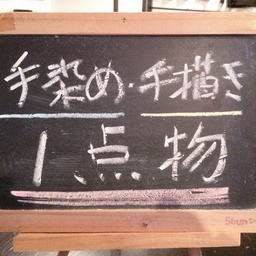 手染め・手描き
1点物